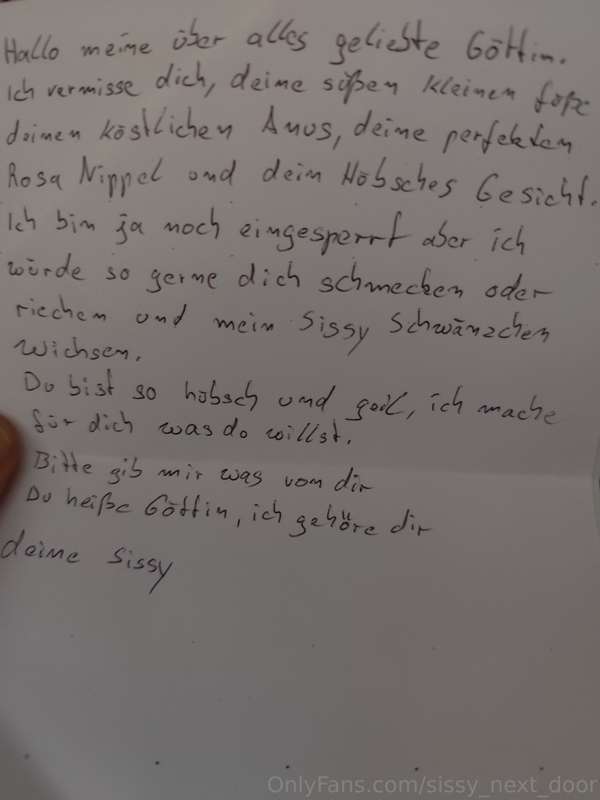 Hallo meine über alles geliebte Göttin.
Ich vermisse dich, deine süßen kleinen füße
deinen köstlichen Anus, deine perfekten
Rosa Nippel und dein Hübsches Gesicht.
Ich bin ja noch eingesperrt aber ich
würde so gerne dich schmecken oder
riechen und mein Sissy Schwänzchen
wichsen.
Du bist so hübsch und geil, ich mache
für dich was du willst.
Bitte gib mir was von dir
Du heiße Göttin, ich gehöre dir
deine Sissy
OnlyFans.com/sissy_next_door